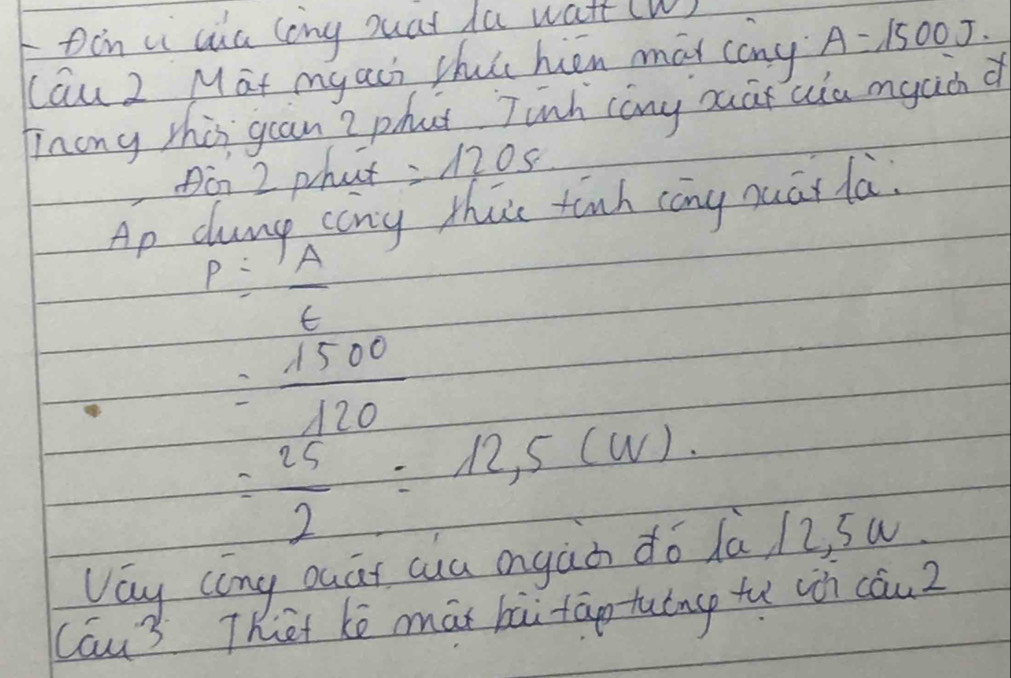 - Đơn vị của công suất là watt (W)
Câu 2 Một người thực hiện một công A = 1500J.
Trong thời gian 2 phút Tính công suất của người đ
Đổi 2 phút = 120s
Áp dụng công thức tính công suất là:
P = A
t
= 1500
120
= 25 = 12,5 (W).
2
Vậy công suất của người đó là 12,5W.
Câu 3 Thiết kế một bài tập tương tự với câu 2